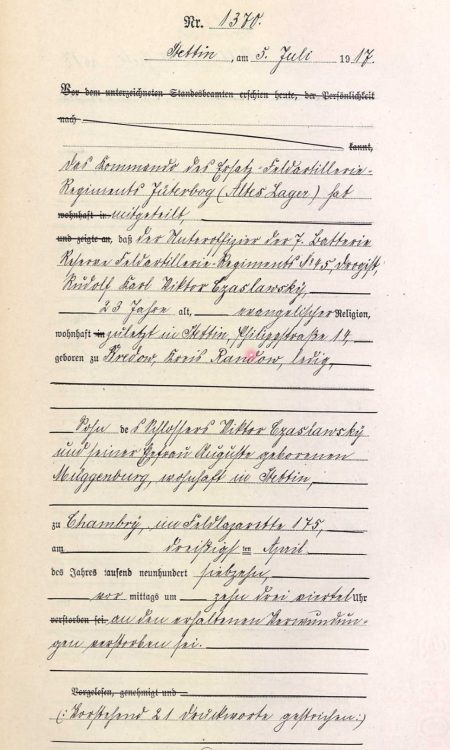 Nr. 1370.
Stettin, am 5. Juli 1917.
Vor dem unterzeichneten Standesbeamten erschien heute, der Persönlichkeit
nach
kannt,
Das Kommando des Ersatz-Feldartillerie-
Regiments Jüterbog (Altes Lager) hat
wohnhaft in mitgeteilt,
und zeigte an, daß der Unteroffizier der 7. Batterie
Reserve Feldartillerie-Regiments No 45, Drogist,
Rudolf Karl Viktor Czaslawský,
23 Jahre alt, evangelischer Religion,
wohnhaft in zuletzt in Stettin, 19,
geboren zu Bredow, Kreis Randow, ledig,
Sohn des Schlossers Viktor Czaslawský
und seiner Ehefrau Auguste geborenen
Müggenburg, wohnhaft in Stettin,
zu Chambrÿ, im Feldlazarette 175,
am dreißigsten April
des Jahres tausend neunhundert siebzehn,
vor mittags um zehn drei viertel Uhr
verstorben sei. an den erhaltenen Verwundun-
gen verstorben sei.
Vorgelesen, genehmigt und
(: Vorstehend 21 Druckworte gestrichen :)